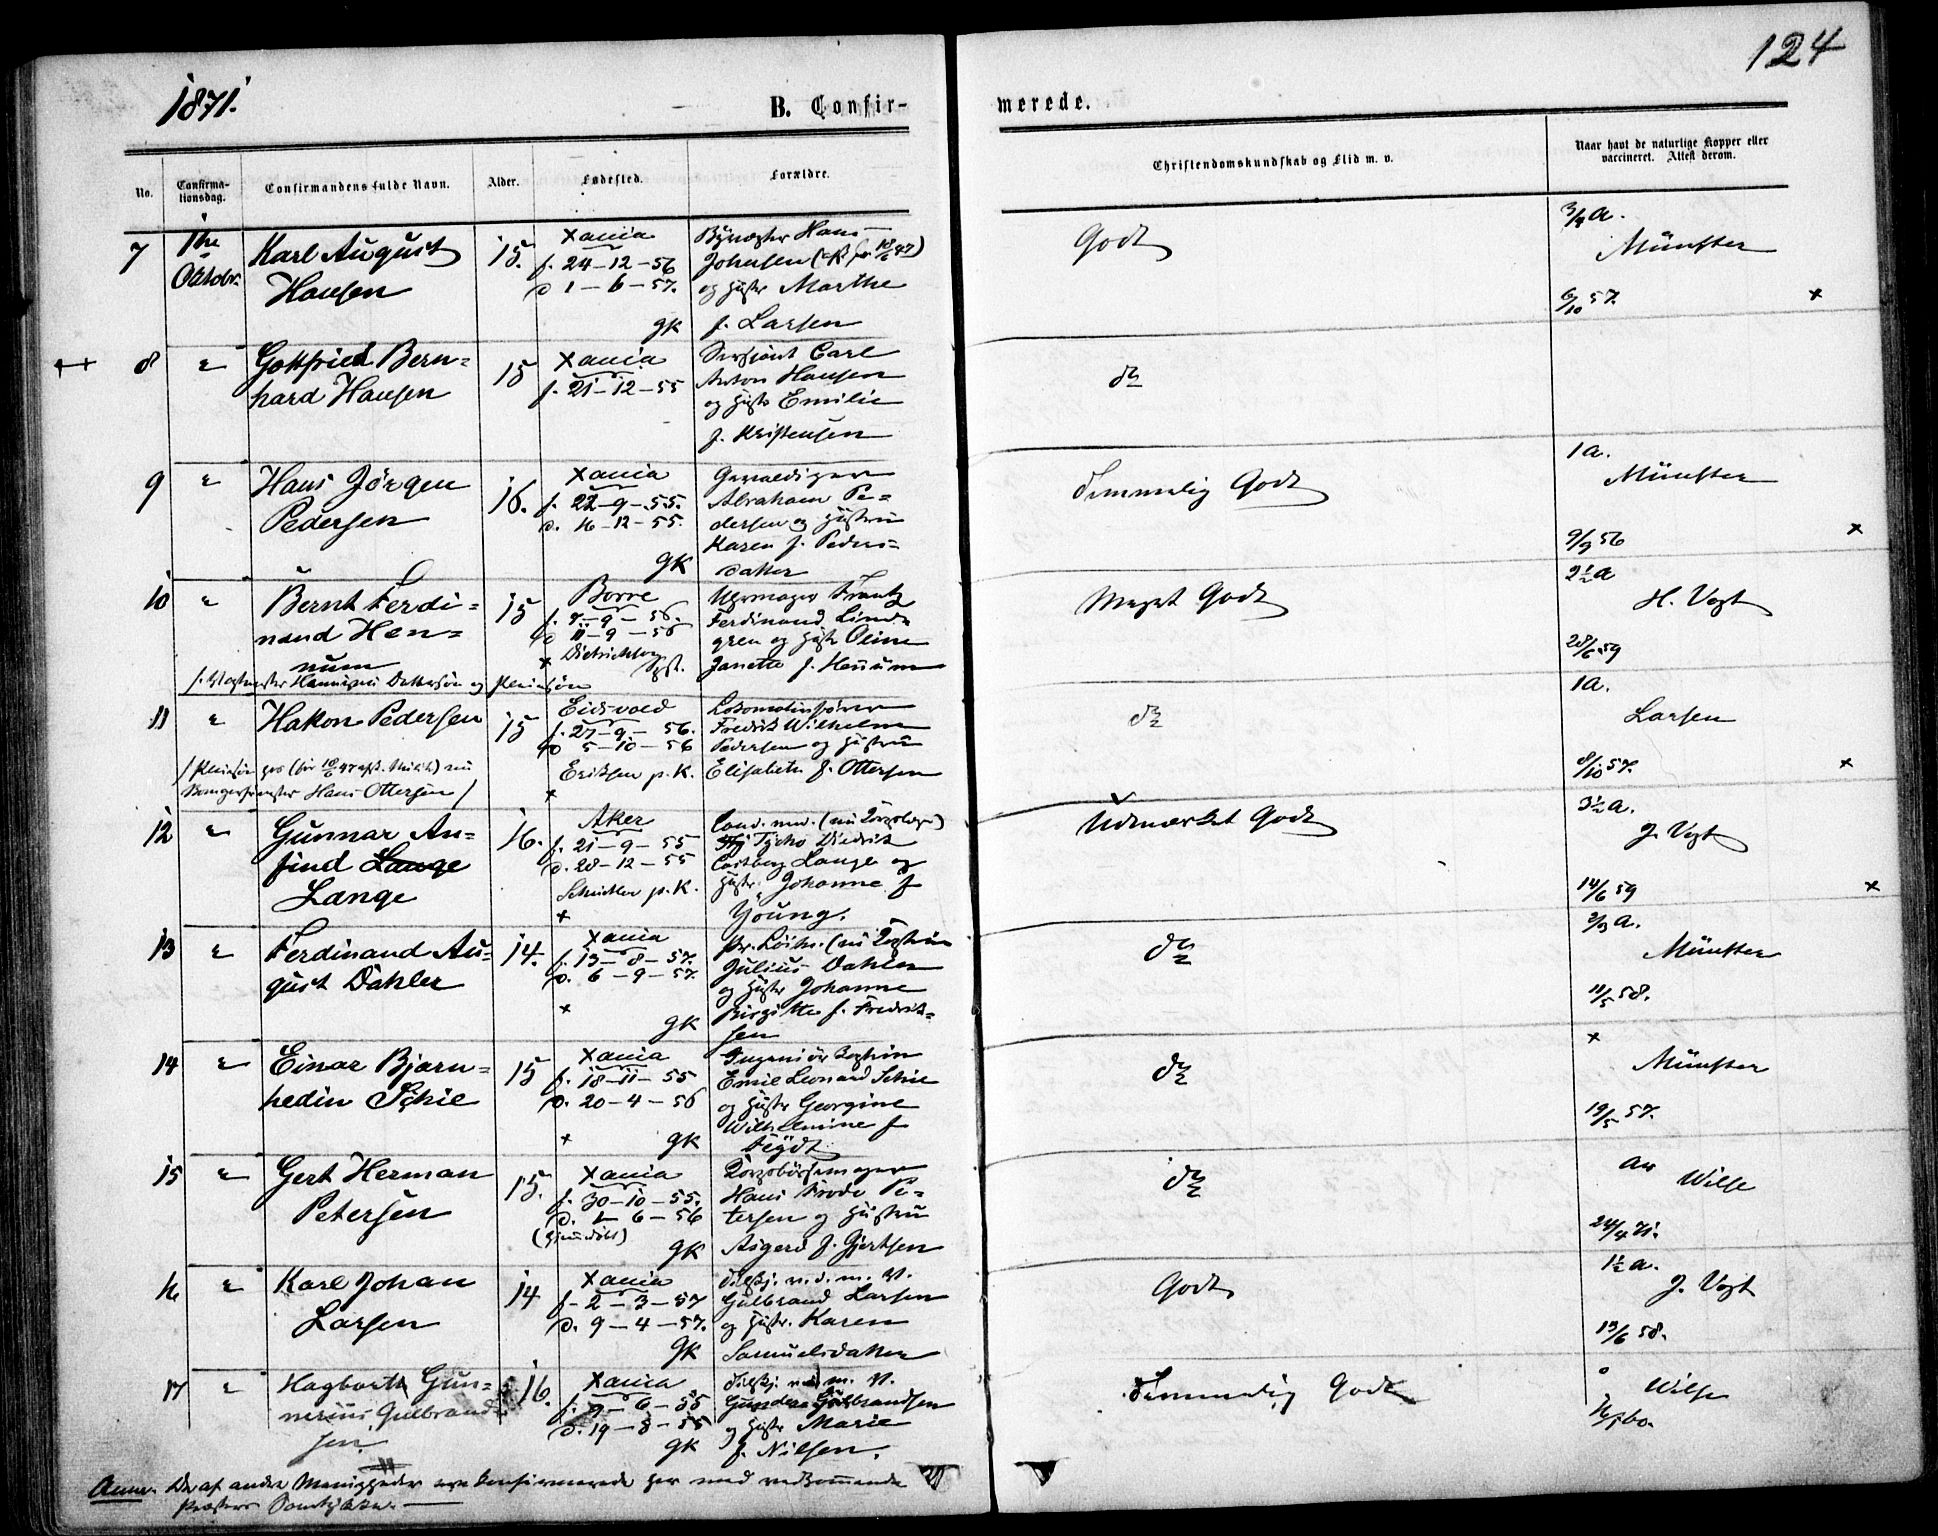 1871.
124
B. Confir-
merede.
No.
Confirma-
tionsdag.
Confirmandens fulde Navn.
Alder.
Fødested.
Forældre.
Christendomskundskab og Flid m. v.
Naar havt de naturlige Kopper eller
vaccineret. Attest derom.
7
1ste
Oktobr.
Karl August
Hansen
15.
Xania
f. 24-12-56
d 1-6-57.
gk
Hans
Johnsen
og Hustr Marthe
f. Larsen
Godt
3/4 a.
Münster
6/10 57.
x
8
"
Gottfried Bern=
hard Hansen
15
Xania
f. 21-12-55
Sersjant Carl
Anton Hansen
og Hustr Emilie
f. Kristensen
do
9
"
Hans Jørgen
Pedersen
16.
Xania
f. 22-9-55.
d. 16-12-55.
gk
Gevaldiger
Abraham Pe=
dersen og Hustru
Karen f. Peders=
datter
Temmelig Godt
1 a.
Münster
9/9 56
x
10
"
Bernt Ferdi=
nand Hen=
num
15
Borre
f. 7-9-56.
d 11-9-56
x
Uhrmager Frantz
Ferdinand Lind=
gren og Hustr Oline
Janette f. Hennum
Meget Godt
2½ a
H. Vogt
28/6 59
11
"
Hakon Pedersen
15
Eidsvold
f. 27-9-56.
5-10-56
Eriksen p. K.
x
Lokomotivfører
Fredrik Wilhelm
Pedersen og Hustru
Elisabeth f. Ottersen
Hans Ottersen /
do
1 a.
Larsen
8/10 57.
x
12
"
Gunnar An=
find Lange
Lange
16.
Aker
f. 21-9-55
d. 28-12-55
p. K.
x
Cand. med. (nu Korpslæge)
Tycho Diedrik
Castberg Lange og
Hustr. Johanne f
Young.
Udmærket Godt
3½ a.
J. Vogt
14/6 59
x
13
"
Ferdinand Au=
gust Dahler
14.
Xania
f. 13-8-57.
d. 6-9-57.
x
gk
Pr. Løitn. (nu Kaptein
Julius Dahler
og Hustr Johanne
Birgitte f. Fredrik=
sen
do
Münster
11/5 58.
14
"
Einar Bjarn=
hedin Schie
15
Xania
f. 18-11-55
d. 20-4-56
x
gk
Ingeniør Kaptein
Emil Leonard Schie
og Hustr Georgine
Wilhelmine f
Feydt
do
x
Münster
19/5 57.
15
"
Gert Herman
Petersen
15.
Xania
f. 30-10-55.
d. 1-6-56
(Hjemdøbt)
gk
Korpsbøssemager
Hans Frode Pe-
tersen og Hustru
Asgerd f. Gjertsen
do
ar
Wilse
24/4 71.
16
"
Karl Johan
Larsen
14
Xania
f. 2-3-57
d. 9-4-57.
gk
Gulbrand Larsen
og Hustr. Karen
Samuelsdatter
Godt
1½ a.
J. Vogt
13/6 58.
17
"
Hagbarth Gun=
nerius Gulbrand=
sen
16.
Xania
f. 9-6-55
d. 19-8-55
gk
Gunder Gulbrandsen
og Hustr Marie
f. Nilsen.
Temmelig Godt
Wilse
Anm. De af andre Menigheder ere konfirmerede her med vedkommende
Præsters Samtykke.